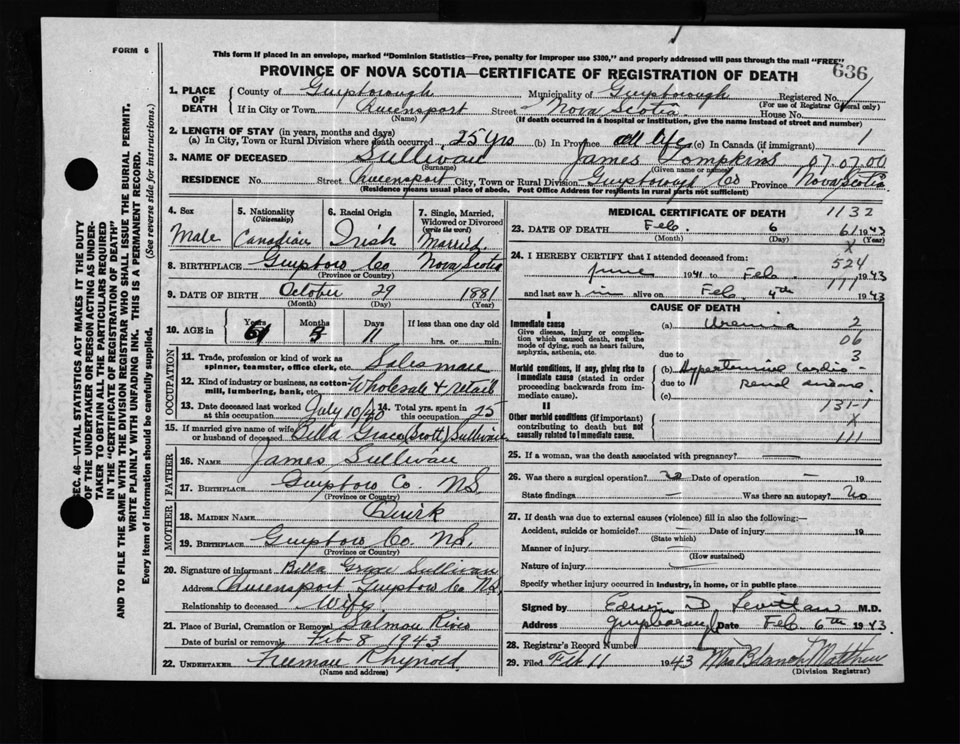 FORM 6
This form if placed in an envelope, marked "Dominion Statistics—Free, penalty for improper use $300," and properly addressed will pass through the mail "FREE"
636
PROVINCE OF NOVA SCOTIA—CERTIFICATE OF REGISTRATION OF DEATH
1. PLACE OF DEATH
County of Guysborough Municipality of Guysborough Registered No. 1
(For use of Registrar General only)
If in City or Town Queensport Street Nova Scotia House No.
(Name) (If death occurred in a hospital or institution, give the name instead of street and number)
2. LENGTH OF STAY (in years, months and days)
(a) In City, Town or Rural Division where death occurred 25 Yrs (b) In Province all life (c) In Canada (if immigrant) 1
3. NAME OF DECEASED Sullivan James Tompkins 07.07.00
(Surname) (Given name or names)
RESIDENCE No. Street Queensport City, Town or Rural Division Guysborough Co Province Nova Scotia
(Residence means usual place of abode. Post Office Address for residents in rural parts not sufficient)
4. Sex 5. Nationality (Citizenship) 6. Racial Origin 7. Single, Married, Widowed or Divorced (write the word)
Male Canadian Irish Married
8. BIRTHPLACE Guysboro Co Nova Scotia
(Province or Country)
9. DATE OF BIRTH October 29 1881
(Month) (Day) (Year)
10. AGE in Years Months Days If less than one day old
61 3 11 hrs. or min.
OCCUPATION
11. Trade, profession or kind of work as spinner, teamster, office clerk, etc. Salesman
12. Kind of industry or business, as cotton-mill, lumbering, bank, etc. Wholesale & retail
13. Date deceased last worked at this occupation July 10/40 14. Total yrs. spent in this occupation 25
15. If married give name of wife or husband of deceased Billa Grace (Scott) Sullivan
FATHER
16. NAME James Sullivan
17. BIRTHPLACE Guysboro Co. N.S.
(Province or Country)
MOTHER
18. MAIDEN NAME Quirk
19. BIRTHPLACE Guysboro Co. N.S.
(Province or Country)
20. Signature of informant Billa Grace Sullivan
Address Queensport, Guysboro Co N.S.
Relationship to deceased Wife
21. Place of Burial, Cremation or Removal Salmon River
Date of burial or removal Feb 8 1943
22. UNDERTAKER Freeman Rhynold
(Name and address)
MEDICAL CERTIFICATE OF DEATH 1132
23. DATE OF DEATH Feb. 6 1943
(Month) (Day) (Year)
61
X
24. I HEREBY CERTIFY that I attended deceased from: 524
June 1941 to Feb. 1943
111
and last saw him alive on Feb. 4th 1943
CAUSE OF DEATH
I
Immediate cause
Give disease, injury or complication which caused death, not the mode of dying, such as heart failure, asphyxia, asthenia, etc.
(a) Uremia 2
06
due to 3
Morbid conditions, if any, giving rise to immediate cause (stated in order proceeding backwards from immediate cause).
(b) Hypertensive cardio-
due to renal
(c)
131-1
II
Other morbid conditions (if important) contributing to death but not causally related to immediate cause.
X
111
25. If a woman, was the death associated with pregnancy? —
26. Was there a surgical operation? no Date of operation — 19
State findings — Was there an autopsy? No
27. If death was due to external causes (violence) fill in also the following:—
Accident, suicide or homicide? — Date of injury 19
(State which)
Manner of injury —
(How sustained)
Nature of injury —
Specify whether injury occurred in industry, in home, or in public place
Signed by Edwin D. M.D.
Address Date Feb. 6th 1943
28. Registrar's Record Number
29. Filed Feb 11 1943 Mrs Blanch Matthew
(Division Registrar)
SEC. 46—VITAL STATISTICS ACT MAKES IT THE DUTY
OF THE UNDERTAKER OR PERSON ACTING AS UNDER-
TAKER TO OBTAIN ALL THE PARTICULARS REQUIRED
IN THE "CERTIFICATE OF REGISTRATION OF DEATH"
AND TO FILE THE SAME WITH THE DIVISION REGISTRAR WHO SHALL ISSUE THE BURIAL PERMIT.
WRITE PLAINLY WITH UNFADING INK. THIS IS A PERMANENT RECORD.
Every item of information should be carefully supplied. (See reverse side for instructions.)